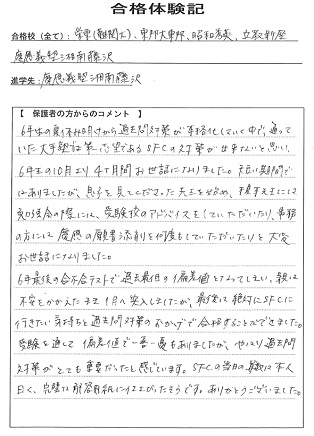 合格体験記
合格校（全て）：栄東(難関大)、東邦大東邦、昭和秀英、立教新座
慶應義塾湘南藤沢
進学先：慶應義塾湘南藤沢
【 保護者の方からのコメント 】
6年生の夏休み明けから過去問対策が本格化していく中で、通って
いた大手塾は第一志望であるSFCの対策が出来ないと思い、
6年生の10月より4ヶ月間お世話になりました。短い期間で
はありましたが、息子を見てくださった先生を始め、
受験校のアドバイスをしていただいたり、事務
の方には慶應の願書添削を何度もしていただいたりと大変
お世話になりました。
6年最後の合不合テストで過去最低の偏差値をとってしまい、親は
不安をかかえたまま1月へ突入しましたが、最後は絶対にSFCに
行きたい気持ちと過去問対策のおかげで合格することができました。
受験を通して偏差値で一喜一憂もありましたが、やはり過去問
対策がとても重要だったと感じています。SFCの当日の算数は本人
曰く、完璧な解答用紙に仕上がったそうです。ありがとうございました。